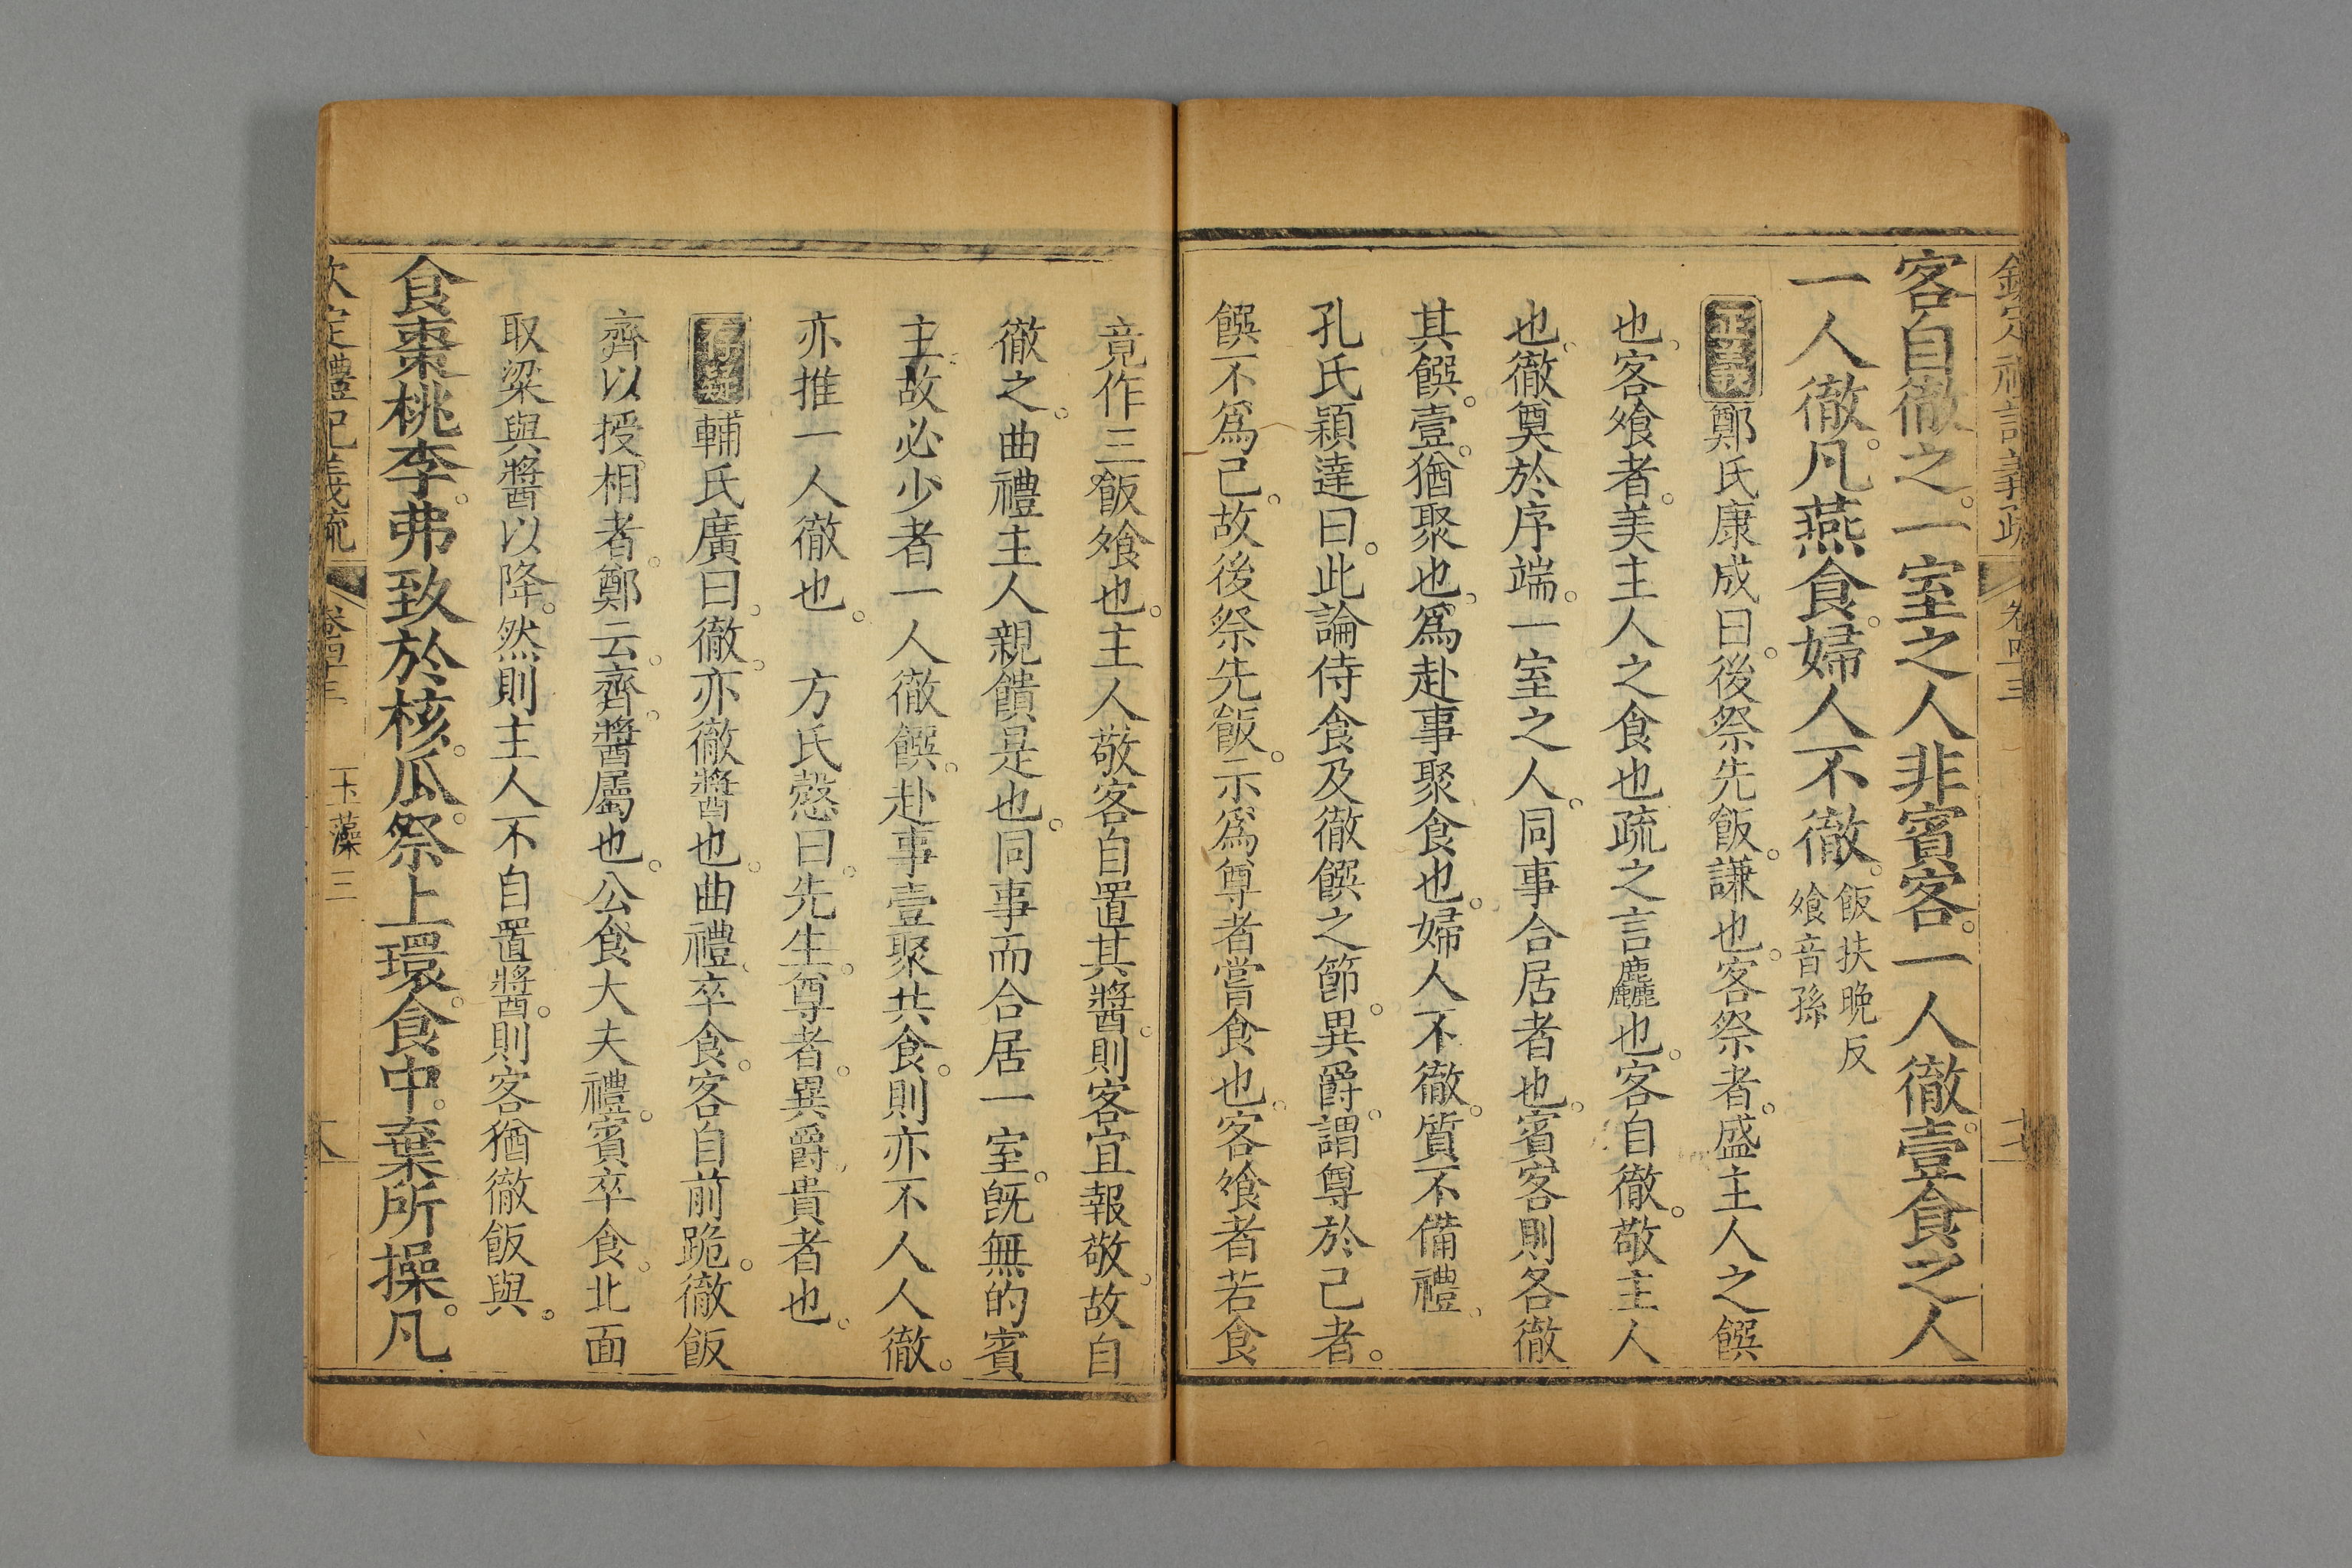 欽定禮記義疏 卷四十三
客自徹之。一室之人非賓客。一人徹。壹食之人
一人徹。凡燕食。婦人不徹。飯扶晚反
飧音孫
正義鄭氏康成曰。後祭先飯。謙也。客祭者。盛主人之饌
也。客飧者。美主人之食也疏之言麤也。客自徹。敬主人
也。徹奠於序端。一室之人。同事合居者也。賓客則各徹
其饌。壹。猶聚也。爲赴事聚食也。婦人不徹。質不備禮。
孔氏穎達曰。此論侍食及徹饌之節。異爵。謂尊於己者。
饌不爲己。故後祭先飯。示爲尊者嘗食也。客飧者若食
竟作三飯飧也。主人敬客自置其醬。則客宜報敬。故自
徹之。曲禮主人親饋是也。同事而合居一室。旣無的賓
主。故必少者一人徹饌。赴事壹聚共食。則亦不人人徹。
亦推一人徹也。 方氏慤曰。先生。尊者。異爵。貴者也。
存疑輔氏廣曰。徹。亦徹醬也。曲禮。卒食。客自前跪。徹飯
齊以授相者。鄭云。齊。醬屬也。公食大夫禮。賓卒食。北面
取粱與醬以降。然則主人不自置醬。則客猶徹飯與。
食棗桃李。弗致於核。瓜祭上環。食中。棄所操。凡
欽定禮記義疏 卷四十三 玉藻三 八